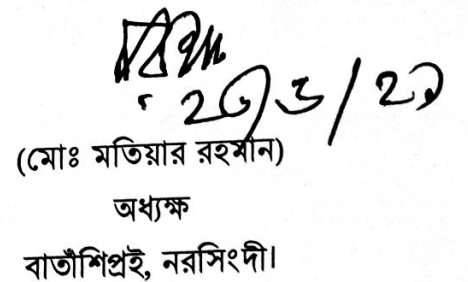 (মোঃ মতিয়ার রহমান)
অধ্যক্ষ
বাতাঁশিপ্রই, নরসিংদী।